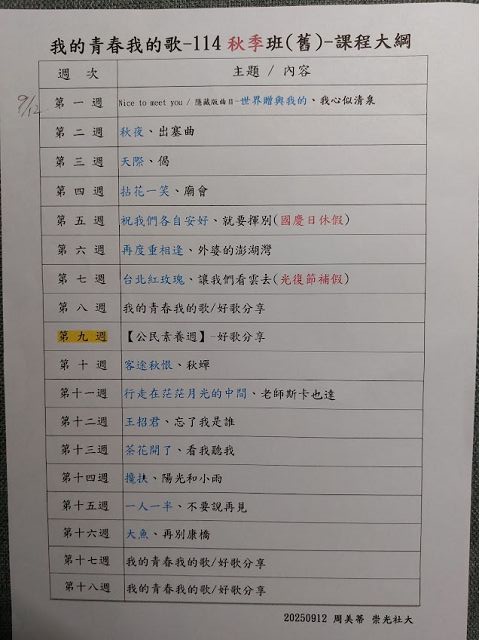 我的青春我的歌-114 秋季班(舊)-課程大綱
週 次 主題 / 內容
9/12
第 一 週 Nice to meet you / 隱藏版曲目-世界贈與我的、我心似清泉
第 二 週 秋夜、出塞曲
第 三 週 天際、偈
第 四 週 拈花一笑、廟會
第 五 週 祝我們各自安好、就要揮別(國慶日休假)
第 六 週 再度重相逢、外婆的澎湖灣
第 七 週 台北紅玫瑰、讓我們看雲去(光復節補假)
第 八 週 我的青春我的歌/好歌分享
第 九 週 【公民素養週】-好歌分享
第 十 週 客途秋恨、秋蟬
第十一週 行走在茫茫月光的中間、老師斯卡也達
第十二週 王招君、忘了我是誰
第十三週 茶花開了、看我聽我
第十四週 攙扶、陽光和小雨
第十五週 一人一半、不要說再見
第十六週 大魚、再別康橋
第十七週 我的青春我的歌/好歌分享
第十八週 我的青春我的歌/好歌分享
20250912 周美蒂 崇光社大